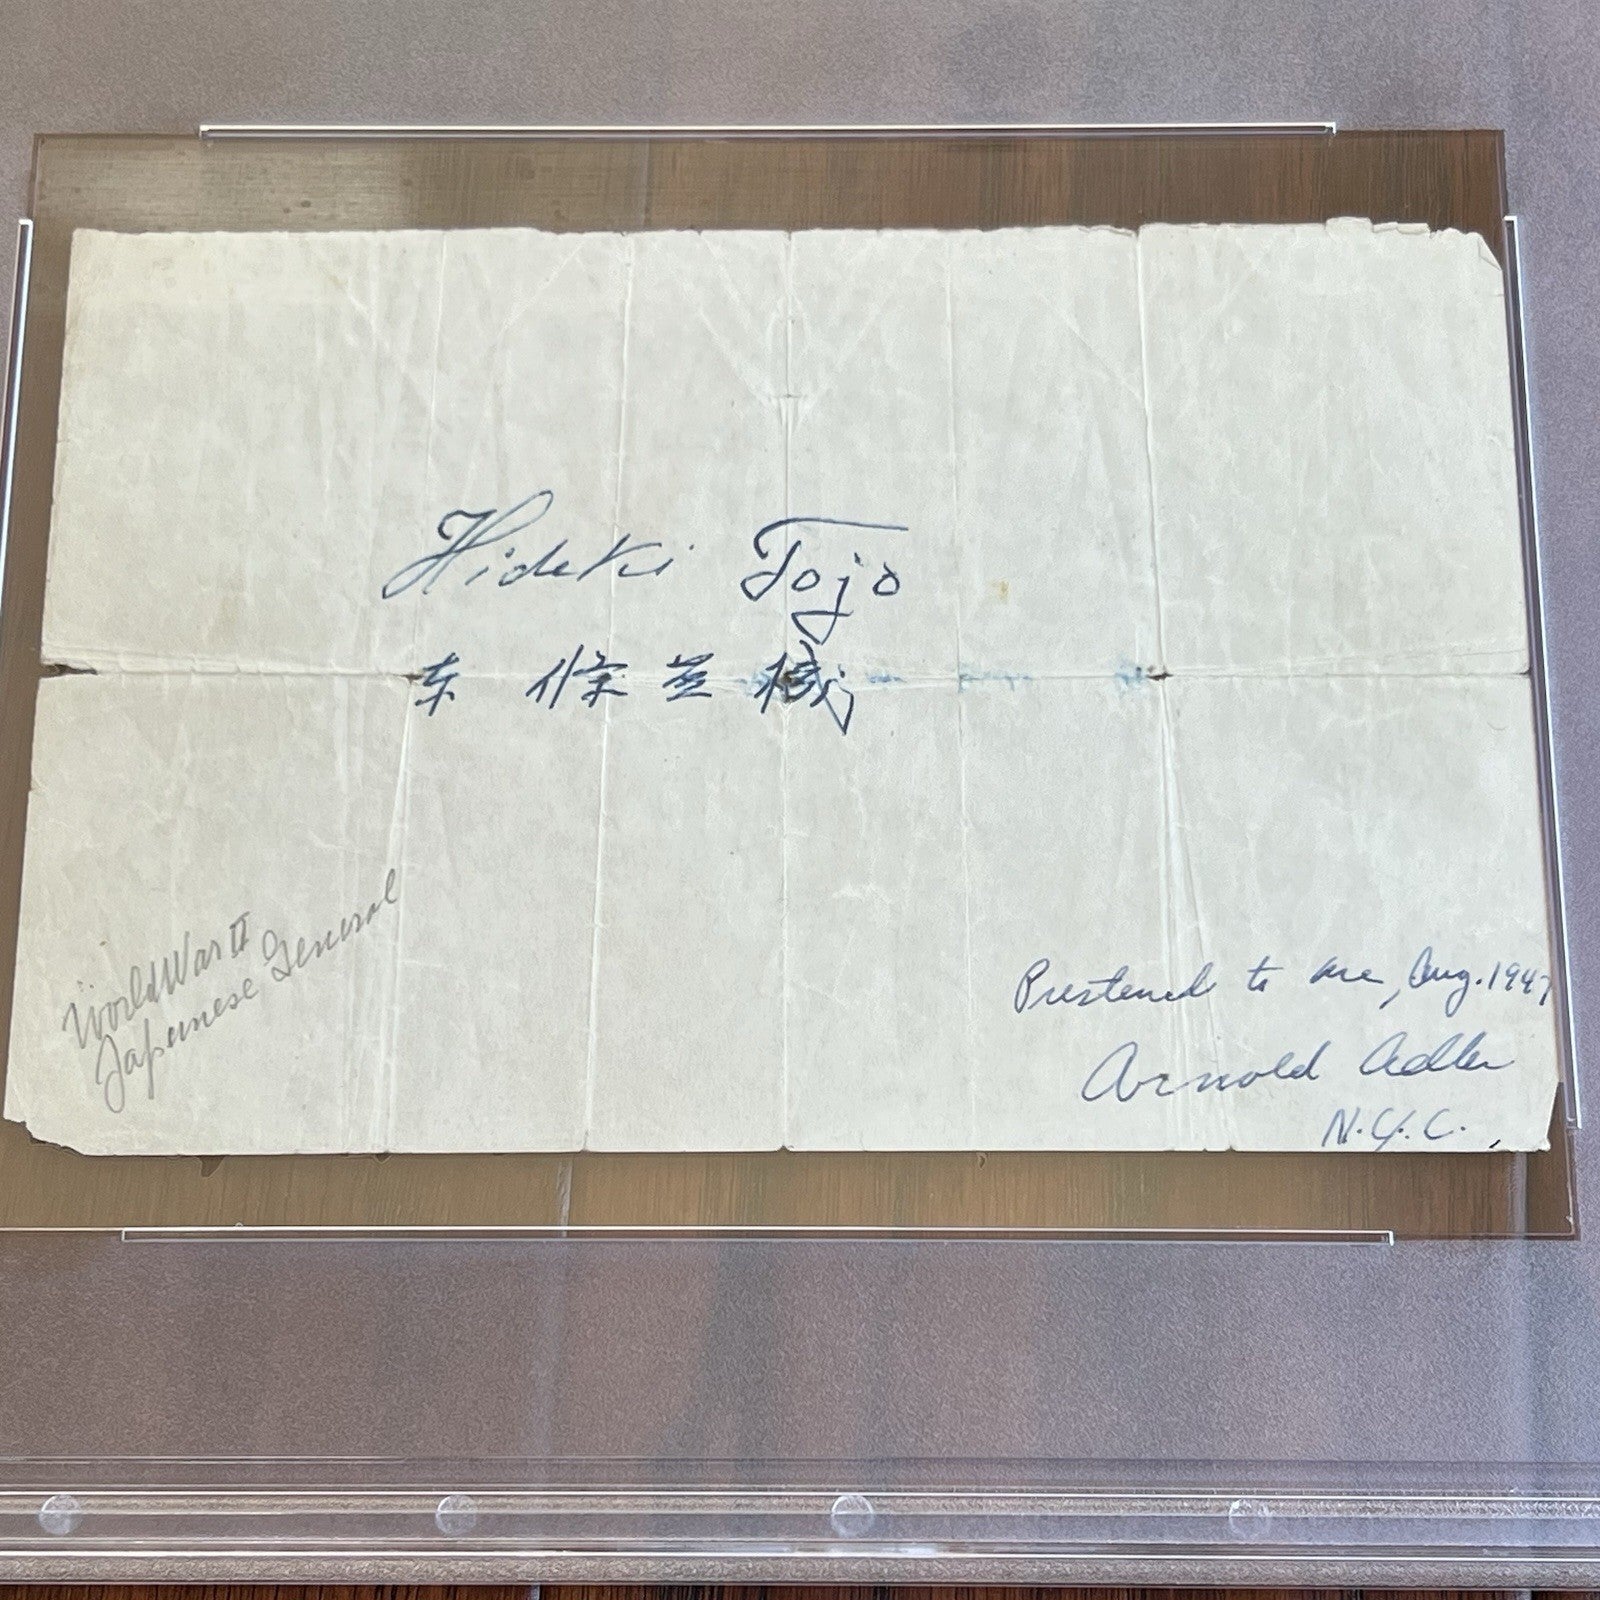 Hideki Tojo
東 條 英 機
World War II
Japanese General
Prestened to me, Aug. 1947
Arnold Adler
N.Y.C.